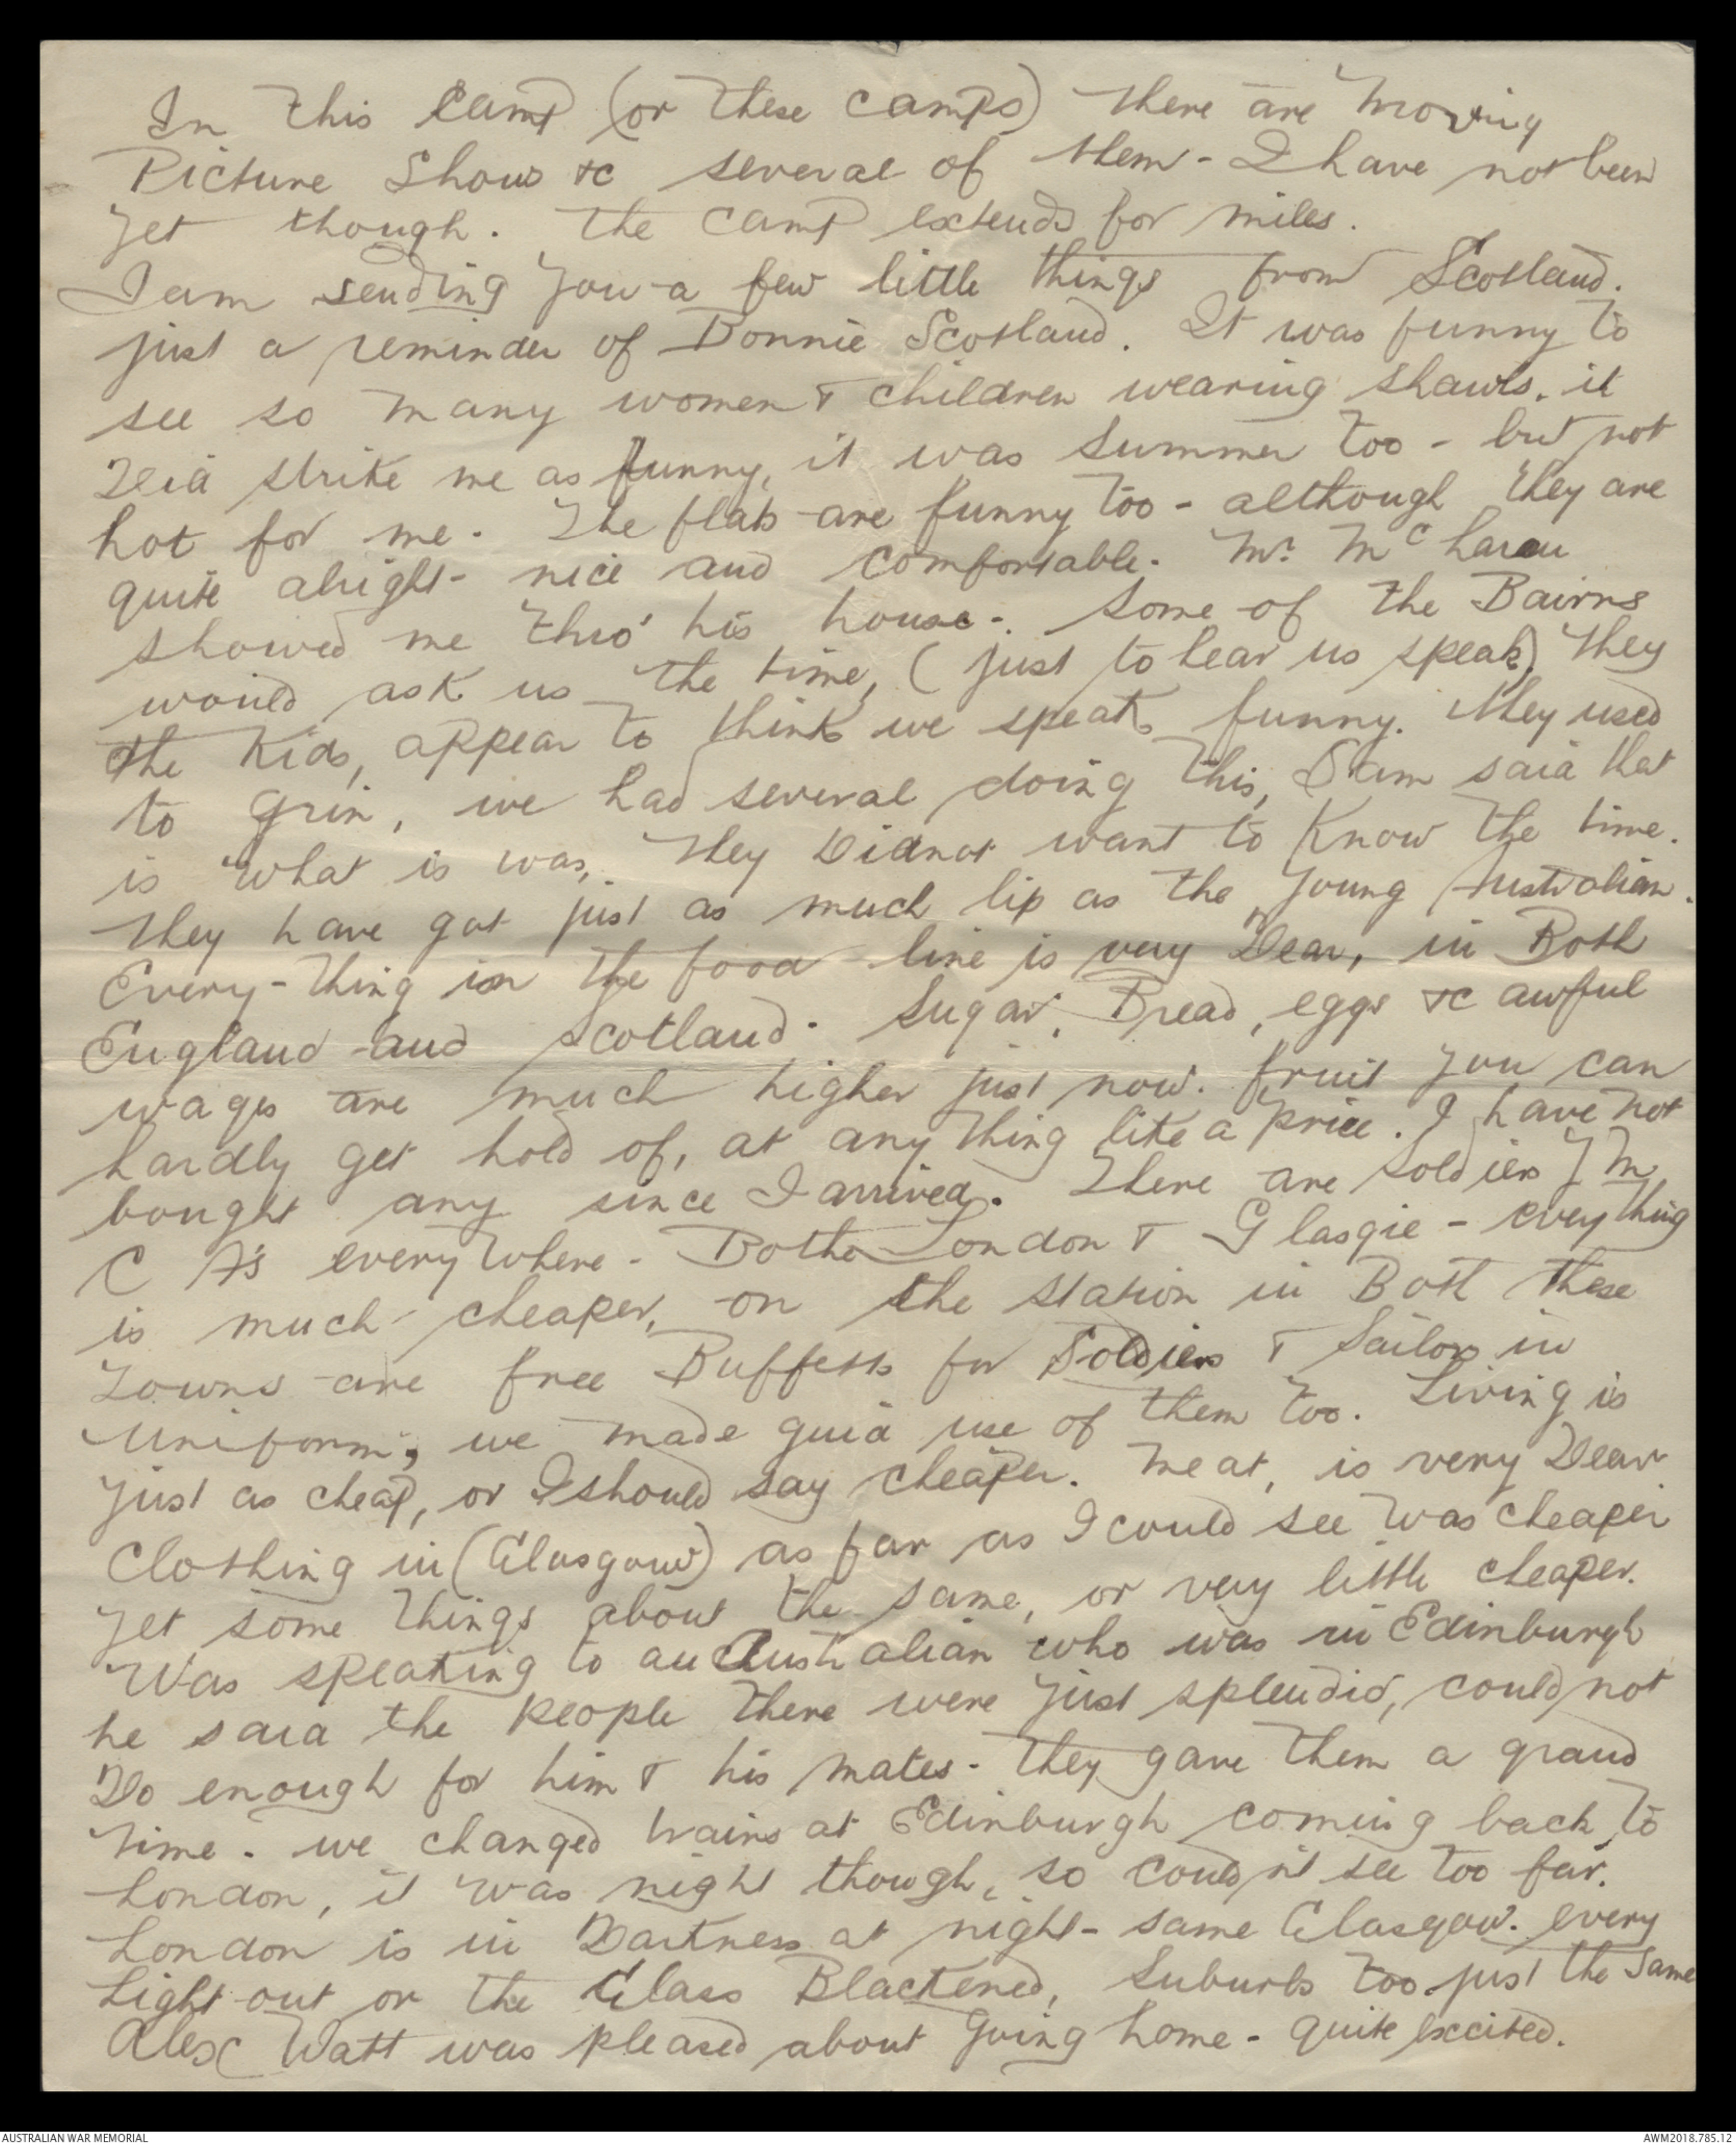 In this Camp (or these camps) there are moving
Picture Shows &c several of them - I have not been
yet though. The camp extends for miles.
I am sending you a few little things from Scotland.
just a reminder of Bonnie Scotland. It was funny to
see so many women & children wearing shawls. it
Did strike me as funny, it was summer too - but not
hot for me. The flats are funny too - although they are
quite alright - nice and comfortable. Mr. McLaren
showed me thro' his house -. Some of the Bairns
would ask us the time, (just to hear us speak) They
the Kids, appear to think we speak funny. They used
to grin, we had several doing this, Sam said that
is what is was, they Didnot want to Know the time.
They have got just as much lip as the young Australian.
Every-thing in the food line is very "Dear, in Both
England and Scotland. Sugar, Bread, eggs &c awful
wages are much higher just now. fruit you can
hardly get hold of, at any thing like a price. I have not
bought any since I arrived. There are Soldiers Y M
C A's everywhere - Both London & Glasgie - everything
is much cheaper, on the station in Both these
Towns are free Buffetts for Soldiers & Sailors in
Uniform, we made guid use of them too. Living is
just as cheap, or I should say cheaper. Meat, is very Dear
Clothing in (Glasgow) as far as I could see was cheaper
yet some things about the same, or very little cheaper.
Was speaking to an Australian who was in Edinburgh
he said the people there were just splendid, could not
Do enough for him & his mates - They gave them a grand
time. we changed trains at Edinburgh coming back to
London, it was night though, so couldn't see too far.
London is in Darkness at night - same Glasgow. every
Light out or the Glass Blackened, Suburbs too just the same
Alex Watt was pleased about going home - quite excited.
AUSTRALIAN WAR MEMORIAL
AWM2018.785.12